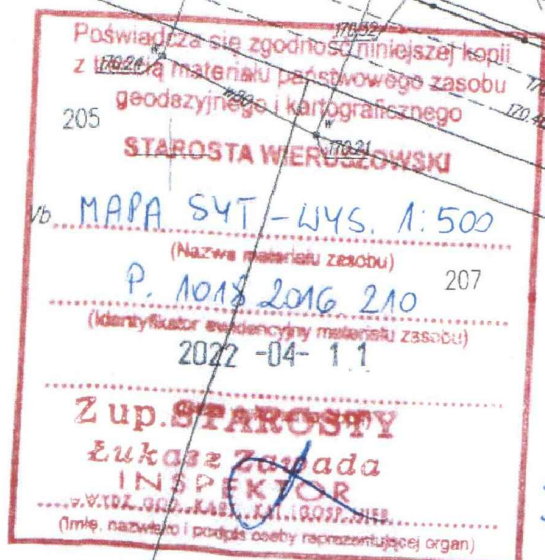 170.52
Poświadcza się zgodność niniejszej kopii
170.24
z treścią materiału państwowego zasobu
geodezyjnego i kartograficznego
170.4
205
STAROSTA WIERUSZOWSKI
170.21
Vb MAPA SYT-WYS. 1:500
(Nazwa materiału zasobu)
P. 1018 2016 210
207
(Identyfikator ewidencyjny materiału zasobu)
2022 -04- 11
Z up. STAROSTY
Łukasz Zawada
INSPEKTOR
(Imię, nazwisko i podpis osoby reprezentującej organ)